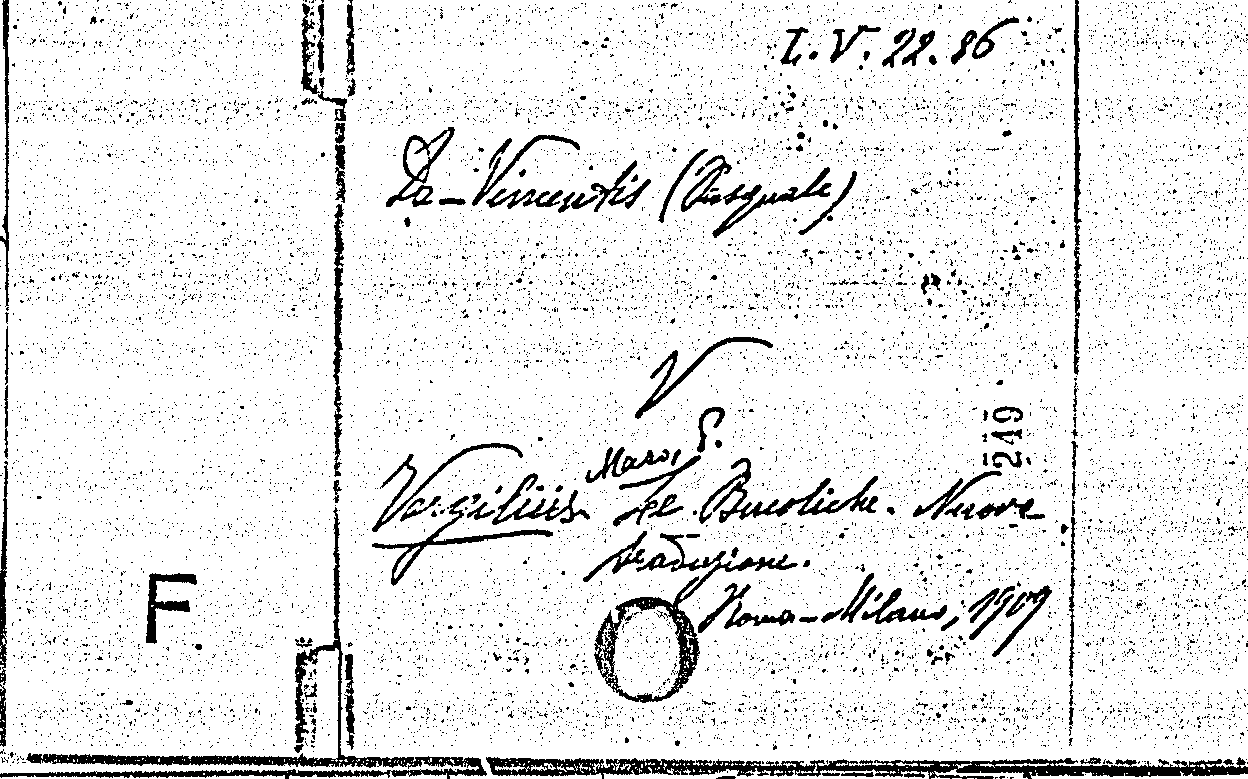 I. V. 22. 86
De-Vincentis (Pasquale)
V
249
Maro, P.
Vergilius. Le Bucoliche. Nuova
traduzione.
Roma-Milano, 1909
F